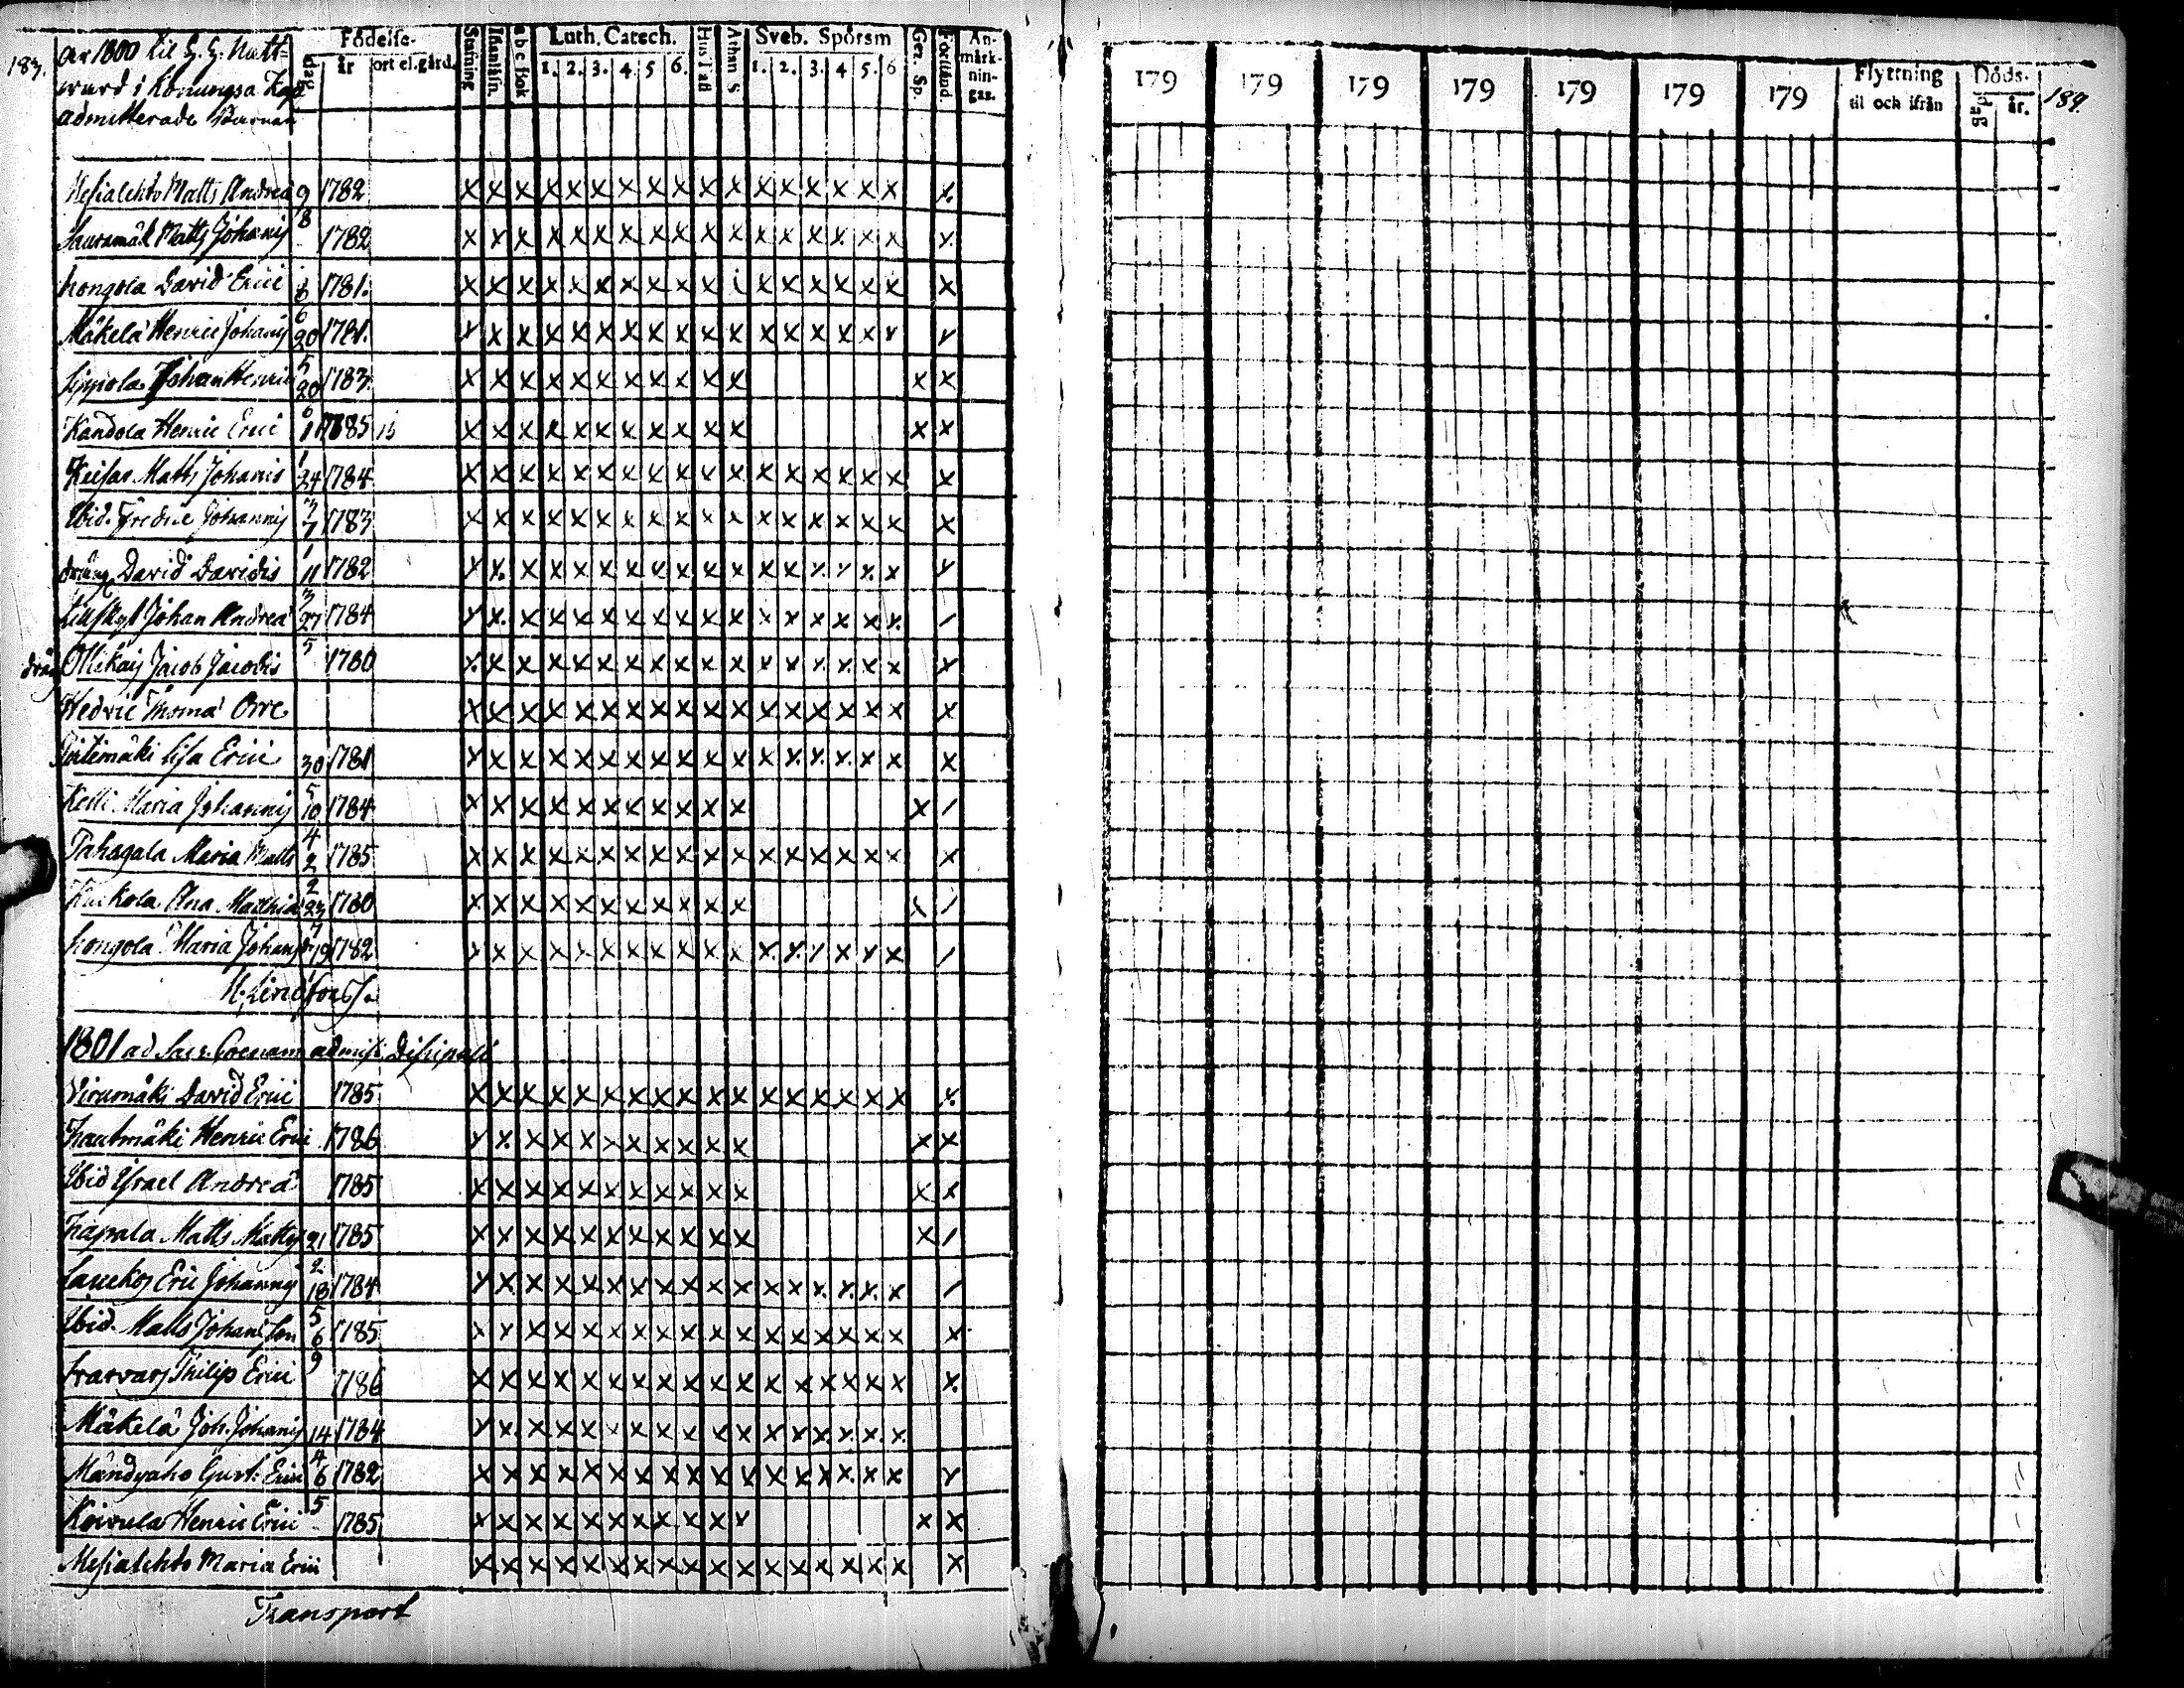 183.
År 1800 til H. H. Natt-
ward i Konungsa Kap
admitterade Barnen
dag
Födelse-
år
ort el. gård.
Stafning
Innanläsn.
a b c Bok
Luth. Catech.
1. 2. 3. 4. 5 6.
Hustafl
Athan S
Sveb. Spörsm
1. 2. 3. 4 5. 6
Ger. Sp.
Förstånd.
An-
märk-
nin-
gar.
Mesialehto Matts Andreæ 9 1782 x x x x x x x x x x x x x x x x x x
8
Sauramäk Matts Johannis 1782 x x x x x x x x x x x x x x x x x x
hongola David Erici 8 1781. x x x x x x x x x x x x x x x x x
6
Mäkelä Henric Johannis 20 1781. x x x x x x x x x x x x x x x x x x
5
Sippola Johan Henric 20 1783. x x x x x x x x x x x x x
6
Kandola Henric Erici 1 1785 x x x x x x x x x x x x x
1
Keisar Matts Johannis 24 1784 x x x x x x x x x x x x x x x x x x
3
Ibid. Fredric Johannis 7 1783 x x x x x x x x x x x x x x x x x x
1
dräng David Davidis 11 1782 x x x x x x x x x x x x x x x x x x
3
Johan Andreæ 27 1784 x x x x x x x x x x x x x x x x x /
5
dräng Ollikais Jacob Jacobis 1780 x x x x x x x x x x x x x x x x x x
Hedvic Thomæ Orre x x x x x x x x x x x x x x x x x x
Lisa Erici 30 1781 x x x x x x x x x x x x x x x x x x
5
Kelli Maria Johannis 10 1784 x x x x x x x x x x x x /
4
Pahagala Maria Matts 2 1785 x x x x x x x x x x x x x x x x x x
2
Kuckola Ana Matthiæ 23 1780 x x x x x x x x x x x x /
7
hongola Maria Johans 19 1782 x x x x x x x x x x x x x x x x x /
1801 ad Sacr. Coenam admissi Discipuli
Virumäki David Erici 1785 x x x x x x x x x x x x x x x x x x
hautmäki Henric Erici 1786 x x x x x x x x x x x x x
Ibid Israel Andreæ 1785 x x x x x x x x x x x x x
hapala Matts Matts 21 1785 x x x x x x x x x x x x /
2
Eric Johannis 18 1784 x x x x x x x x x x x x x x x x x /
5
Ibid. Matts Johansson 6 1785 x x x x x x x x x x x x x x x x x x
9
Philip Erici 1786 x x x x x x x x x x x x x x x x x x
Mäkelä Joh. Johannis 14 1784 x x x x x x x x x x x x x x x x x
4
Mändyaho Gust. Erici 6 1782 x x x x x x x x x x x x x x x x x x
5
Koivula Henric Erici 1785 x x x x x x x x x x x x x
Mesialehto Maria Erici x x x x x x x x x x x x x x x x x x
Transport
179 179 179 179 179 179 179
Flyttning
til och ifrån
Döds-
dag år.
184.